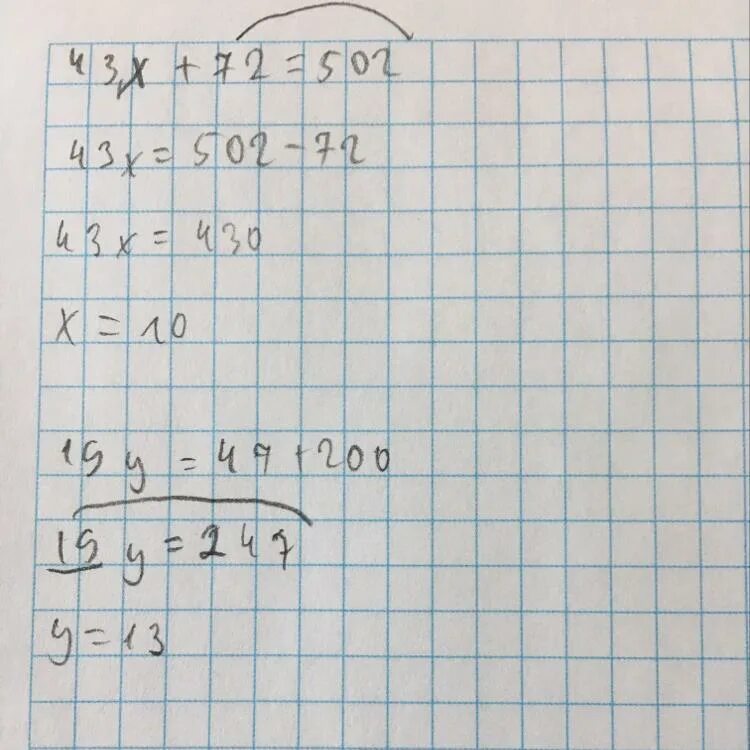 43x + 72 = 502
43x = 502 - 72
43x = 430
x = 10
19y = 47 + 200
19y = 247
y = 13